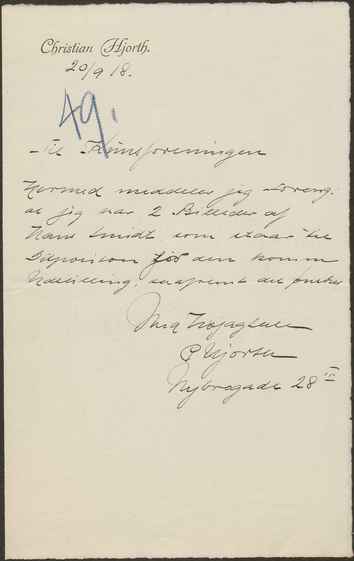 Christian Hjorth.
20/9 18.
49.
Til Kunstforeningen
Hermed meddeler jeg
at jeg har 2 Billeder af
Hans Smidt som staar til
Disposition for den komm.
Udstilling, saafremt det ønskes
Med Højagtelse
C Hjorth
Nybrogade 28 III